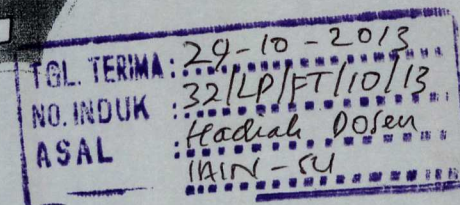 TGL. TERIMA : 29-10-2013
NO. INDUK : 32/LP/FT/10/13
ASAL : Hadiah Dosen
IAIN-SU